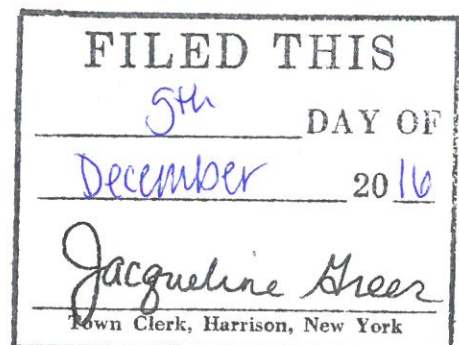 FILED THIS
9th DAY OF
December 2016
Jacqueline Greer
Town Clerk, Harrison, New York